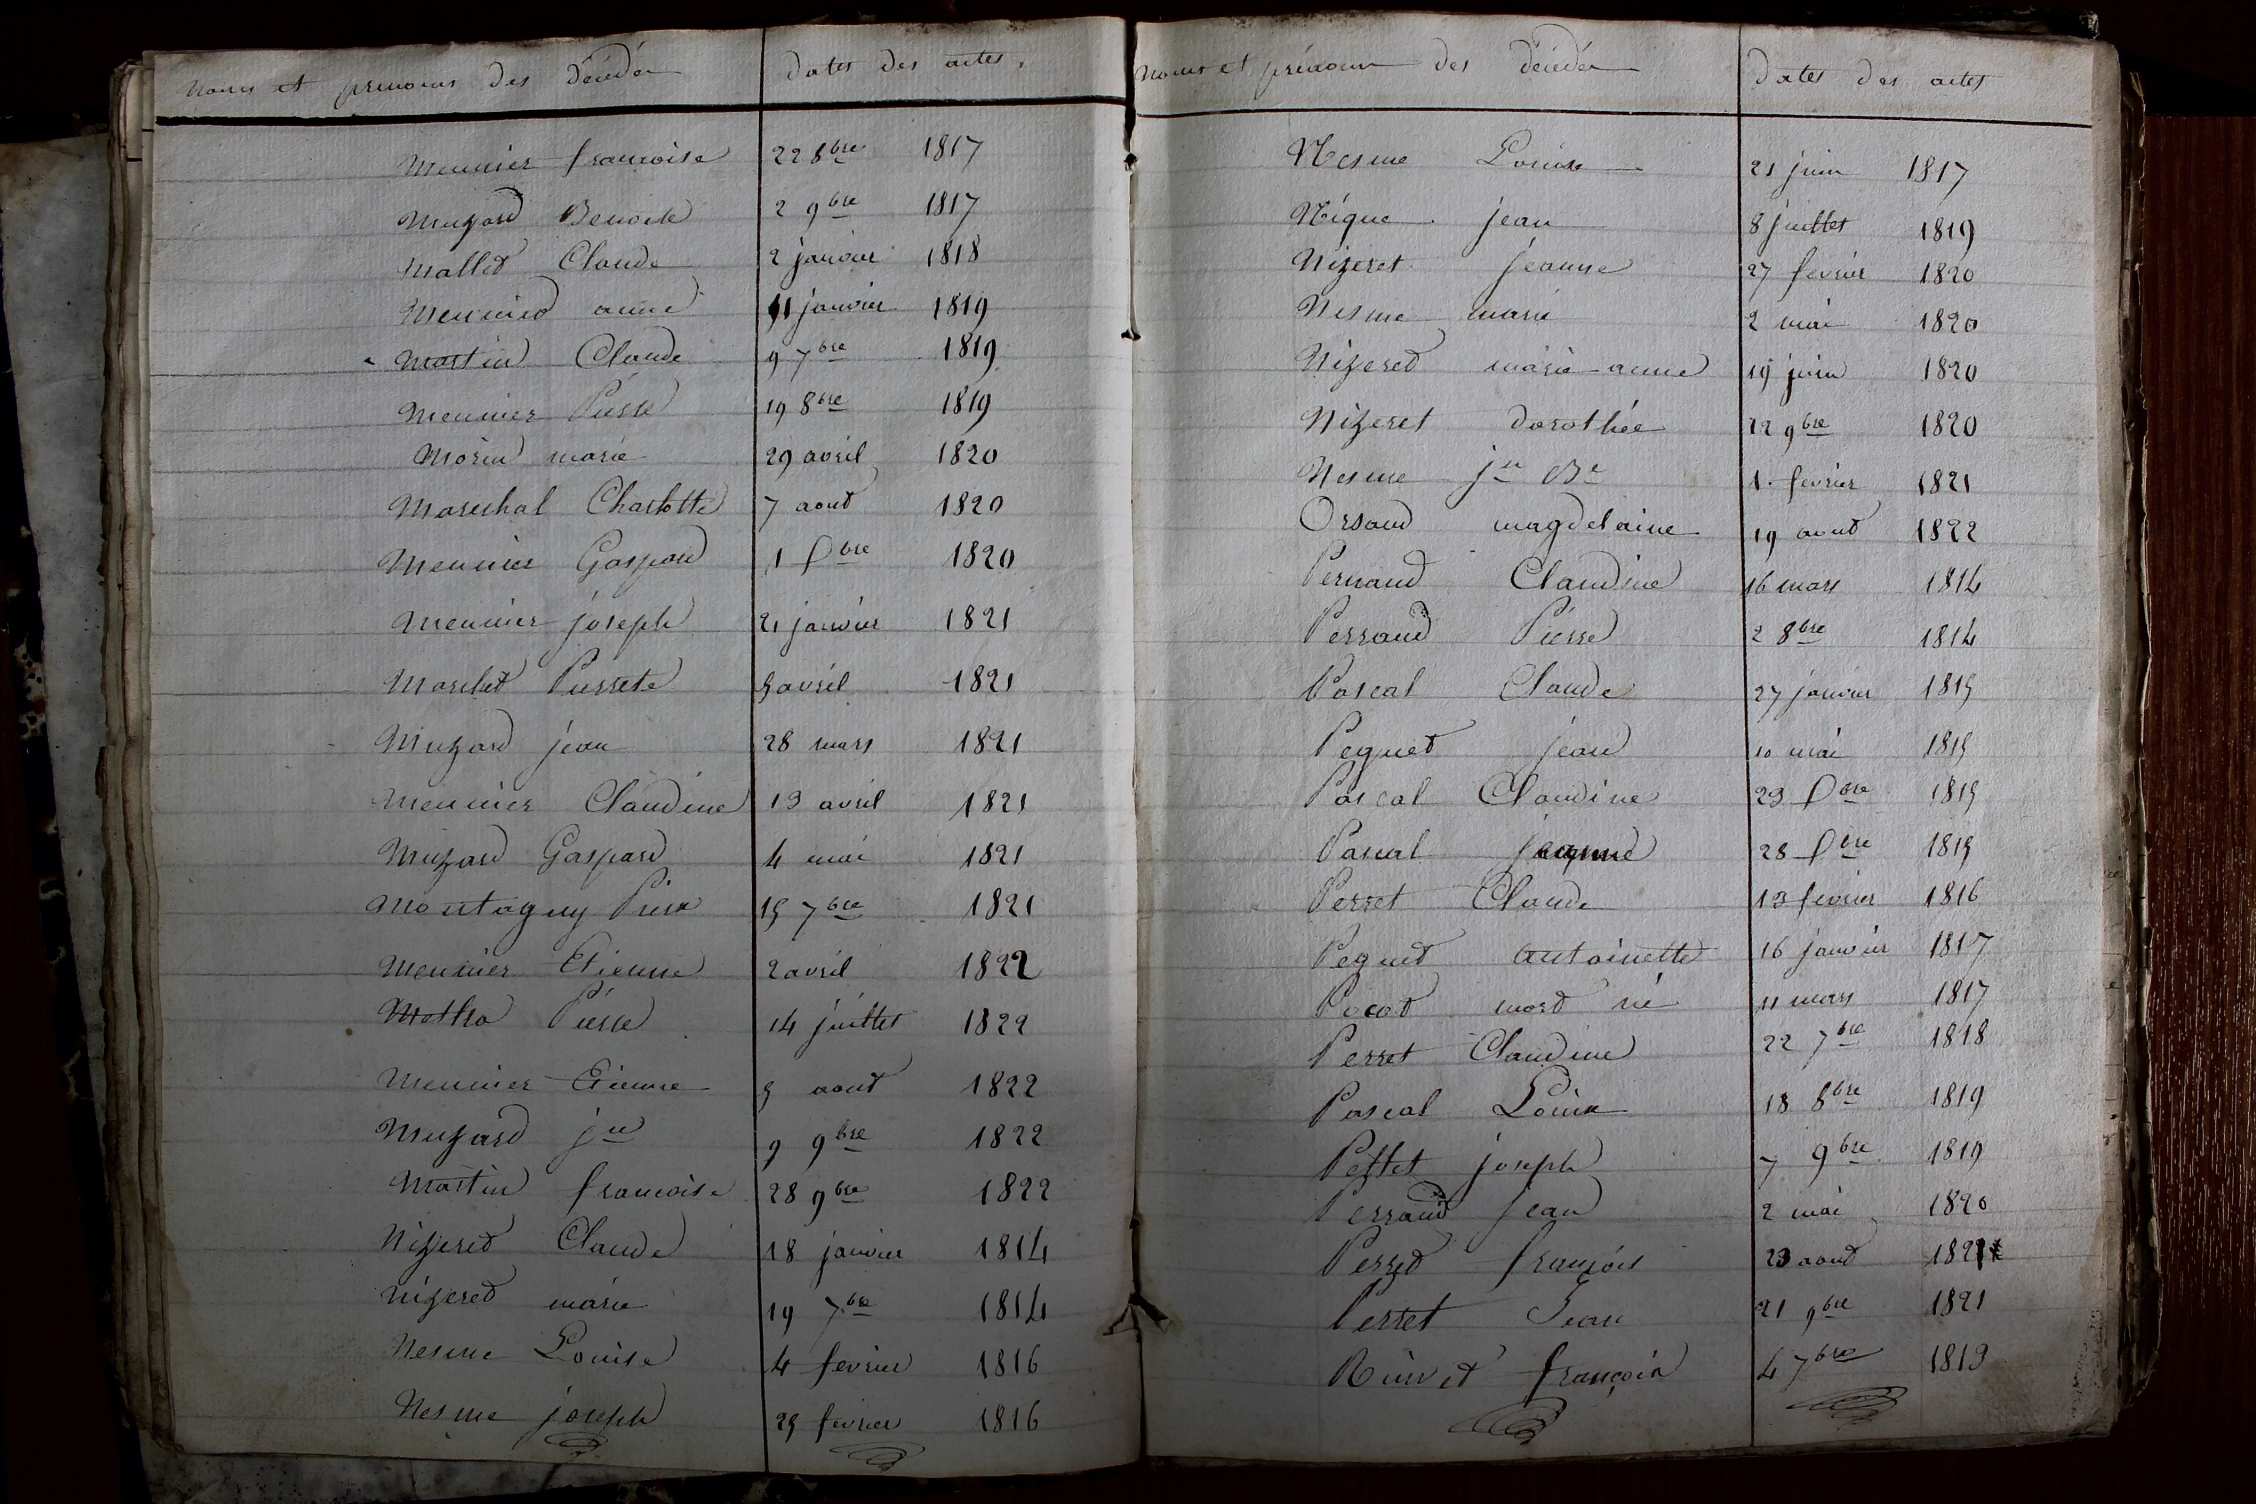 noms et prenoms des décédés dates des actes.
Meunier francoise 22 8bre 1817
Muzard Benoite 2 9bre 1817
Mallet Claude 2 janvier 1818
Meunier anne 11 janvier 1819
Martin Claude 9 7bre 1819
Meunier Pierre 19 8bre 1819
Morin marie 29 avril 1820
Marechal Charlotte 7 aout 1820
Meunier Gaspard 1 Xbre 1820
Meunier joseph 21 janvier 1821
Marchet Pierrette 5 avril 1821
Muzard jean 28 mars 1821
Meunier Claudine 13 avril 1821
Muzard Gaspard 4 mai 1821
Montagny Pierre 15 7bre 1821
Meunier Etienne 2 avril 1822
Motha Pierre 14 juillet 1822
Meunier Etienne 5 aout 1822
Muzard jne 9 9bre 1822
Martin francoise 28 9bre 1822
Nizeret Claude 18 janvier 1814
Nizeret marie 19 7bre 1814
Nesme Louise 4 fevrier 1816
Nesme joseph 25 fevrier 1816
noms et prénoms des décédés dates des actes
Nesme Louise 21 juin 1817
Nique jean 8 juillet 1819
Nizeret jeanne 27 fevrier 1820
Nesme marie 2 mai 1820
Nizeret marie-anne 19 juin 1820
Nizeret dorothée 22 9bre 1820
Nesme jn Bte 1. fevrier 1821
Orsaud magdelaine 19 aout 1822
Perraud Claudine 16 mars 1814
Perraud Pierre 2 8bre 1814
Pascal Claude 27 janvier 1815
Peguet jean 10 mai 1815
Pascal Claudine 23 Xbre 1815
Pascal jeanne 28 Xbre 1815
Perret Claude 13 fevrier 1816
Peguet antoinette 16 janvier 1817
Pocot mort né 11 mars 1817
Perret Claudine 22 7bre 1818
Pascal Louise 18 8bre 1819
Pettet joseph 7 9bre 1819
Perraud Jean 2 mai 1820
Perret françois 23 aout 1821
Perret Jean 21 9bre 1821
françois 4 7bre 1813